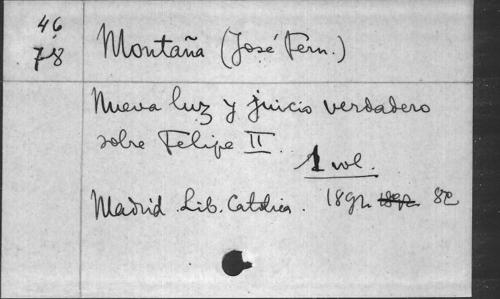 46
78
Montaña (José Fern.)
Nueva luz y juicio verdadero
sobre Felipe II
1 vol.
Madrid. Lib. Católica. 1892 1892 8º